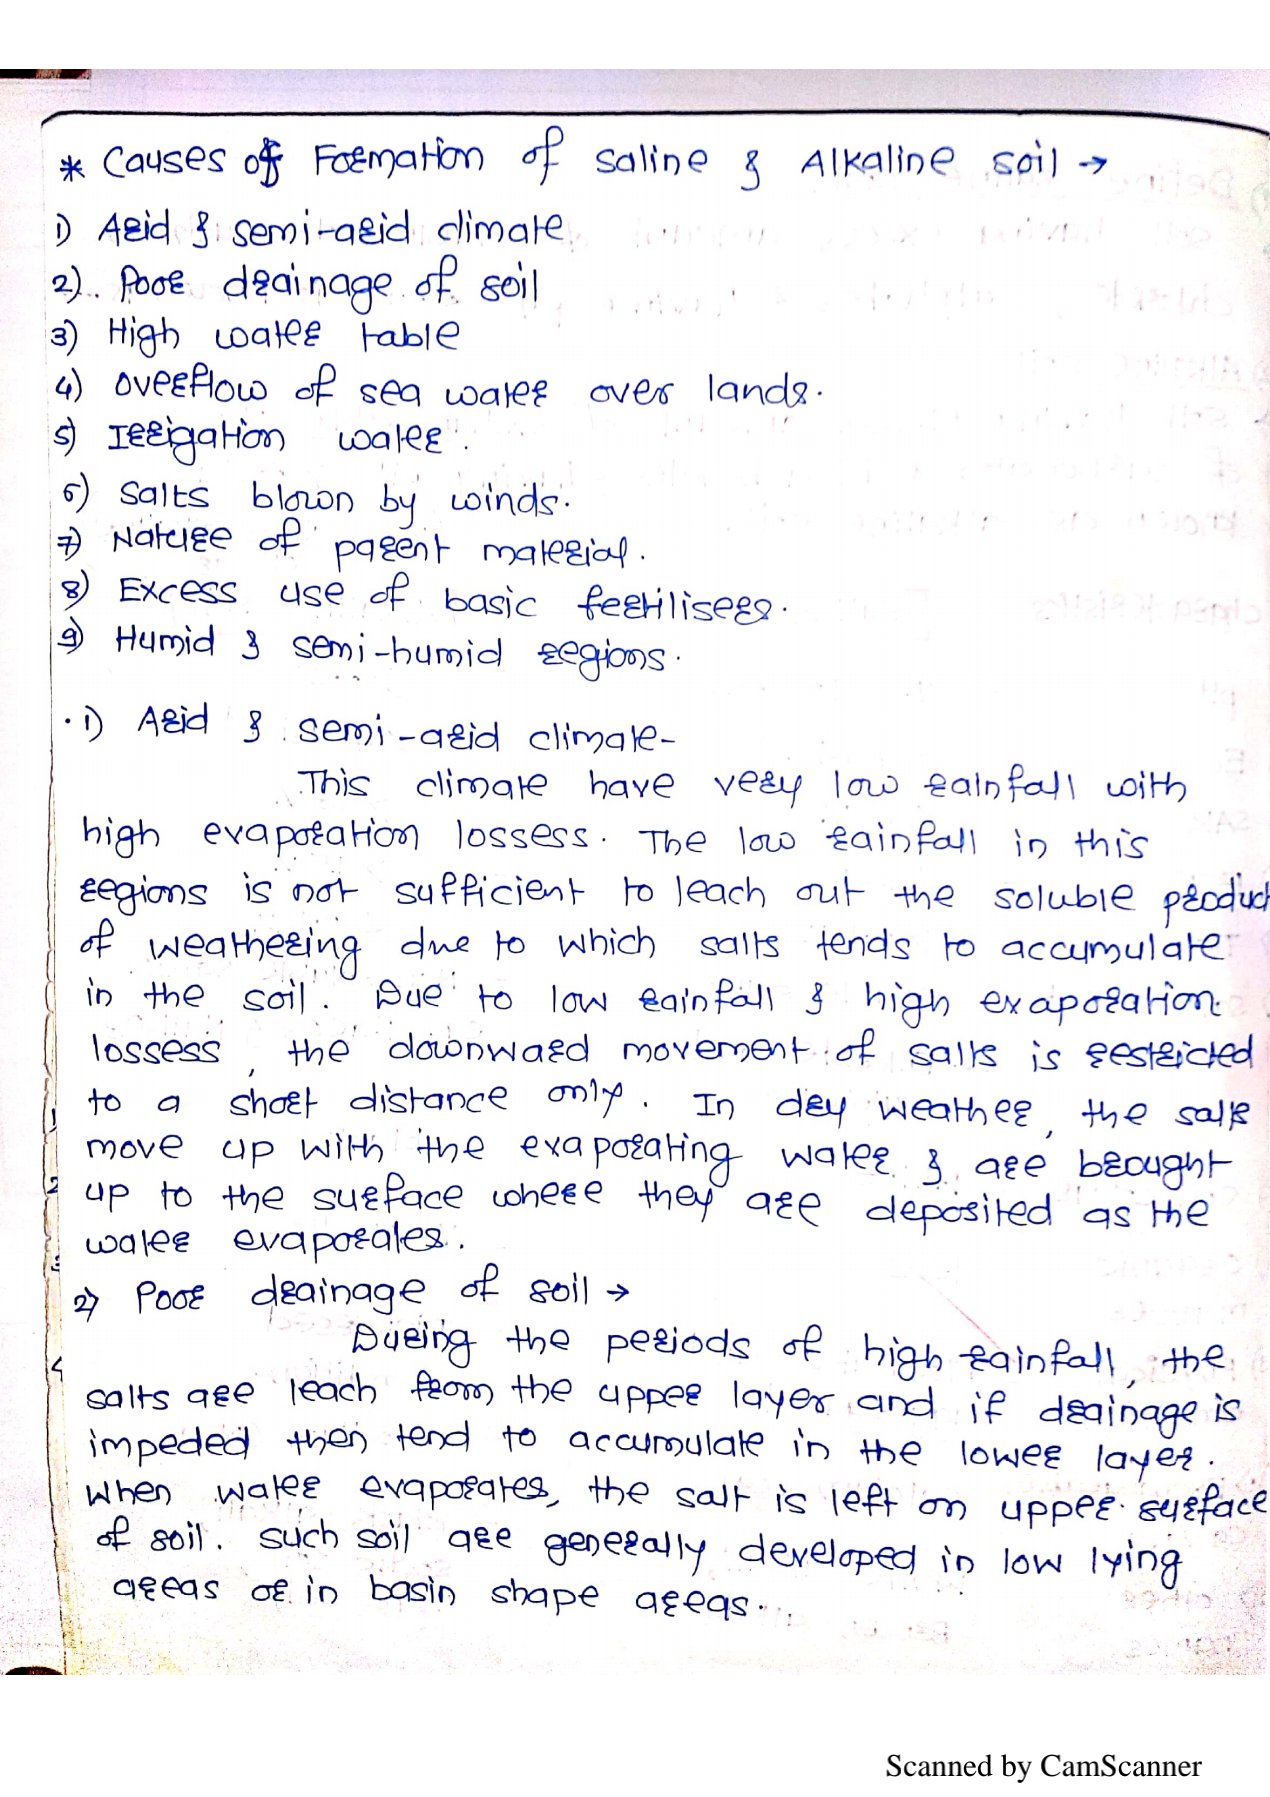 * Causes of Formation of saline & Alkaline soil →
1) Arid & semi-arid climate
2) Poor drainage of soil
3) High water table
4) overflow of sea water over lands.
5) Irrigation water.
6) Salts blown by winds.
7) Nature of parent material.
8) Excess use of basic fertilisers.
9) Humid & semi-humid regions.
1) Arid & semi-arid climate-
This climate have very low rainfall with
high evaporation lossess. The low rainfall in this
regions is not sufficient to leach out the soluble product
of weathering due to which salts tends to accumulate
in the soil. Due to low rainfall & high evaporation
lossess, the downward movement of salts is restricted
to a short distance only. In dry weather, the salts
move up with the evaporating water & are brought
up to the surface where they are deposited as the
water evaporates.
2) Poor drainage of soil →
During the periods of high rainfall, the
salts are leach from the upper layer and if drainage is
impeded then tend to accumulate in the lower layer.
When water evaporates, the salt is left on upper surface
of soil. such soil are generally developed in low lying
areas or in basin shape areas.
Scanned by CamScanner